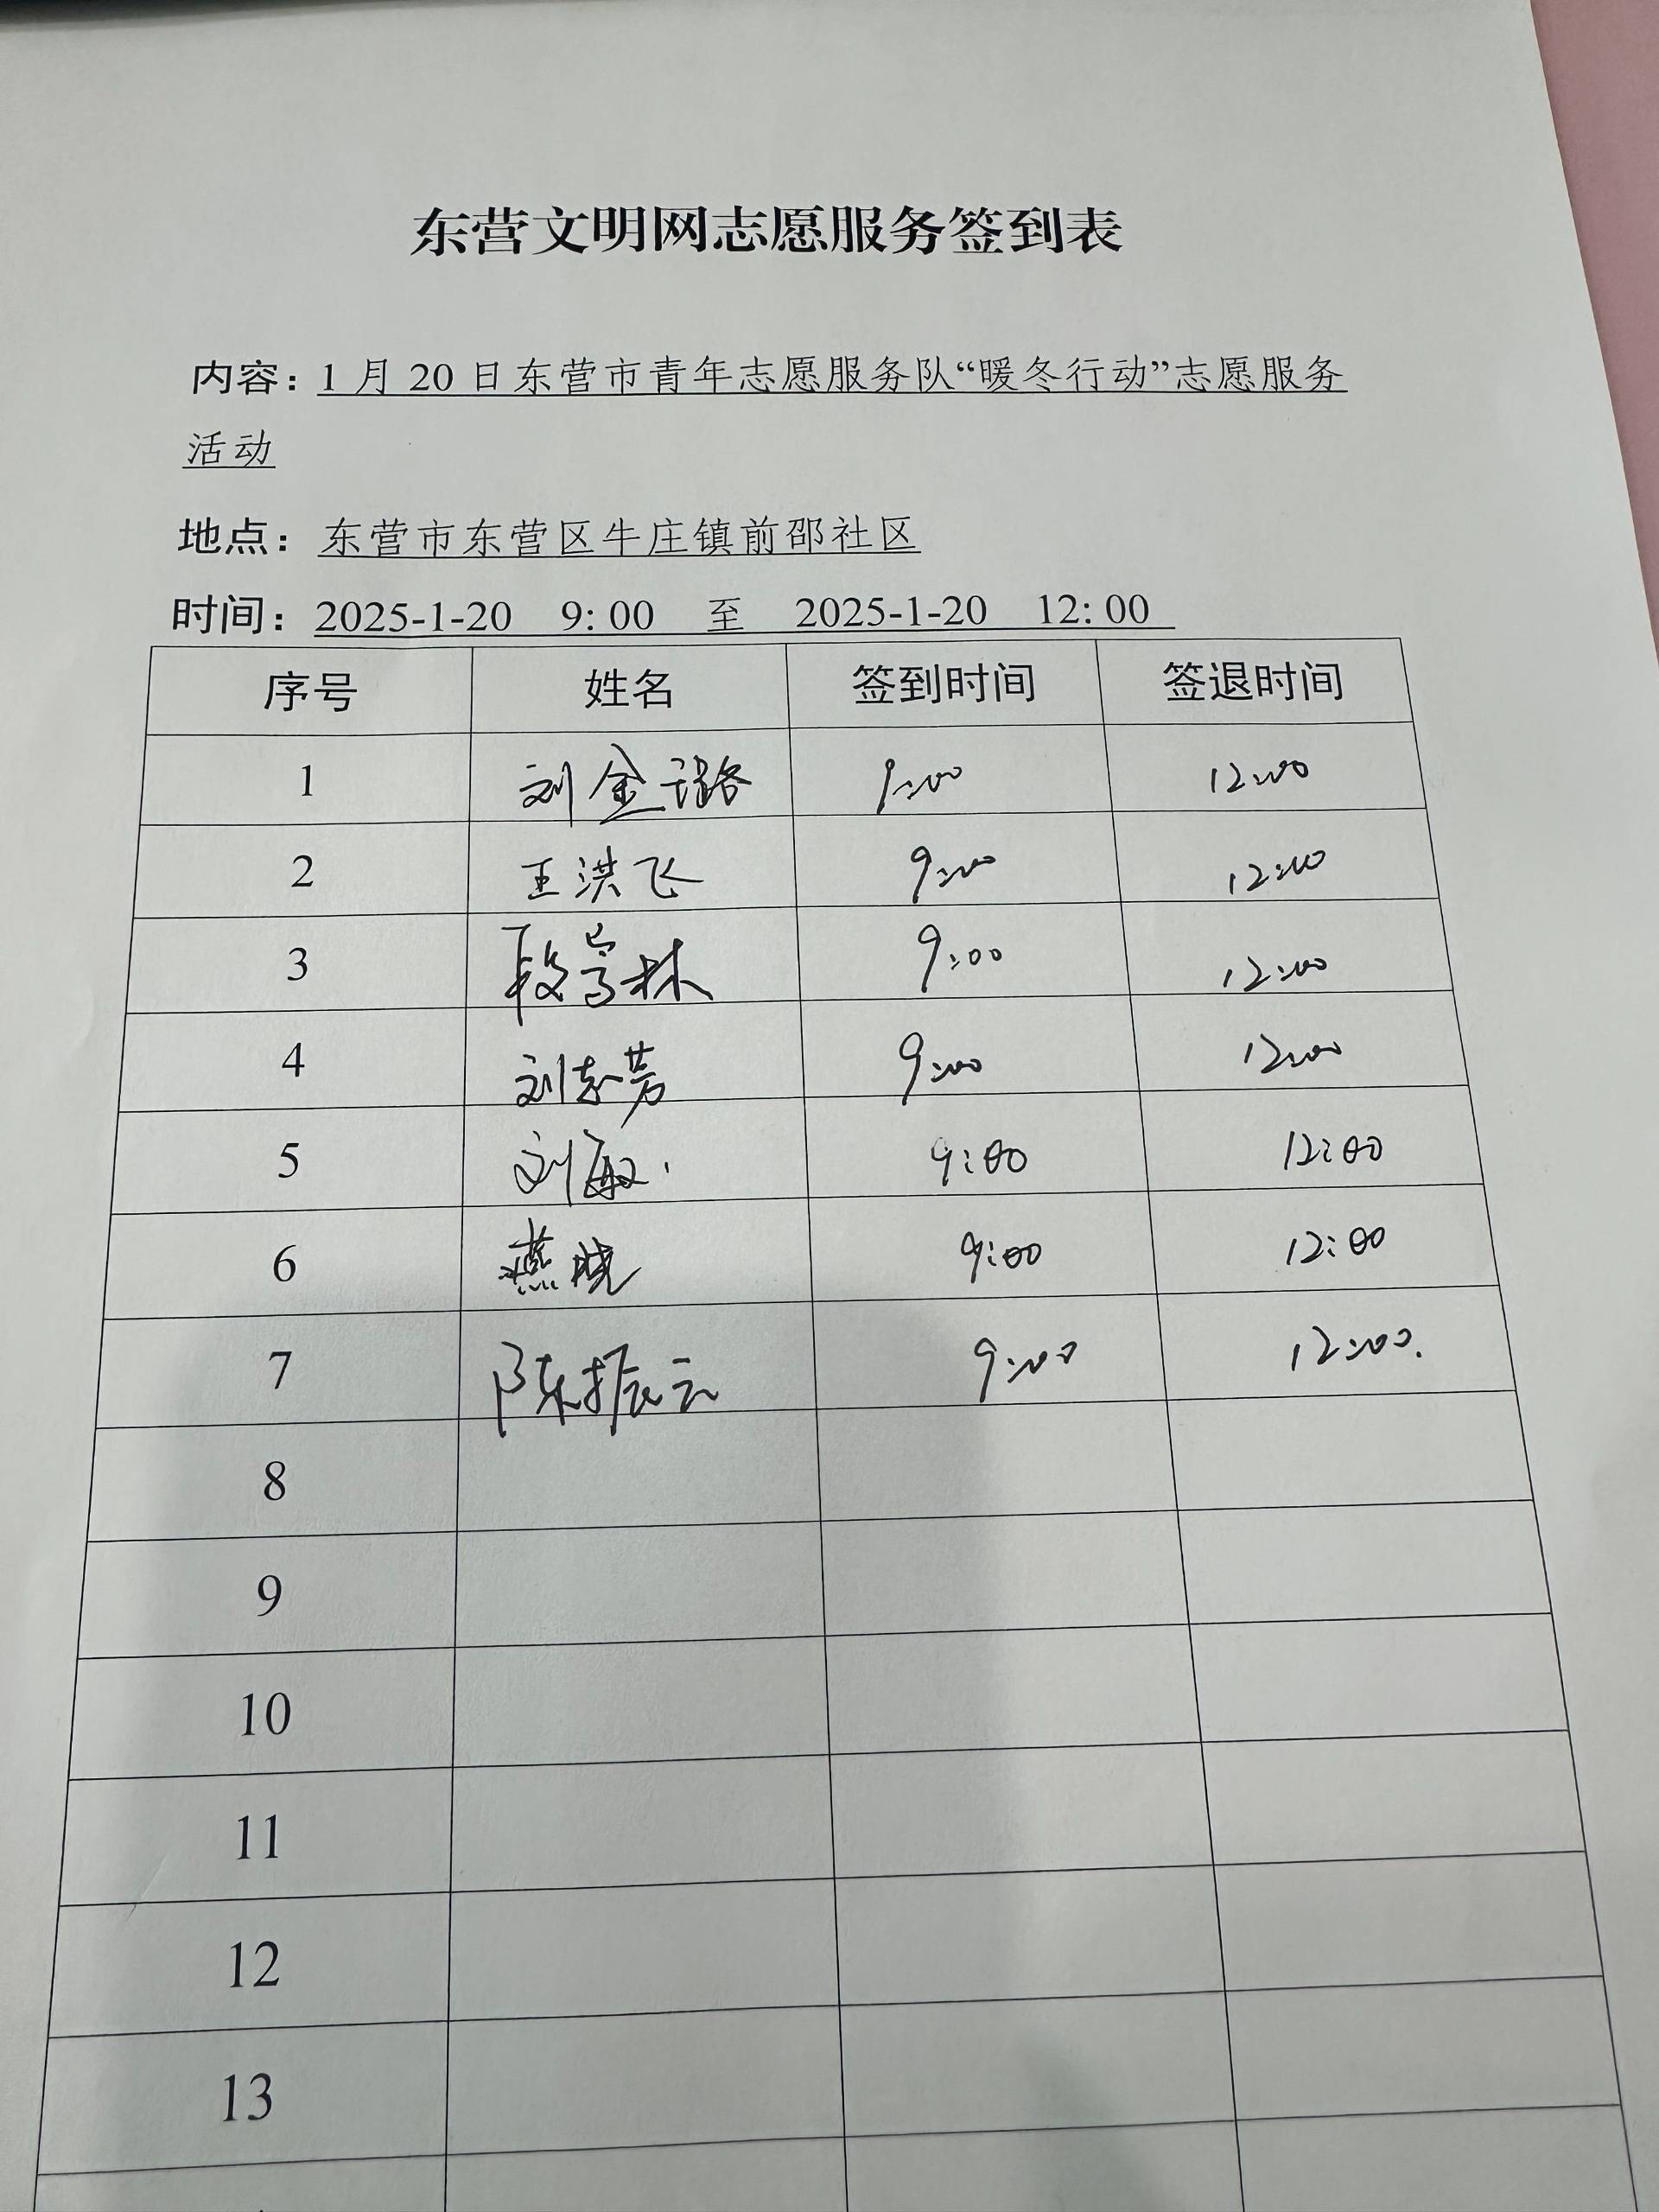 东营文明网志愿服务签到表
内容：1 月 20 日东营市青年志愿服务队“暖冬行动”志愿服务
活动
地点：东营市东营区牛庄镇前邵社区
时间：2025-1-20 9: 00 至 2025-1-20 12: 00
序号 姓名 签到时间 签退时间
1 刘金璐 9:00 12:00
2 王洪飞 9:00 12:00
3 段嵩林 9:00 12:00
4 刘志芳 9:00 12:00
5 刘敏 9:00 12:00
6 燕晓 9:00 12:00
7 陈振云 9:00 12:00.
8
9
10
11
12
13